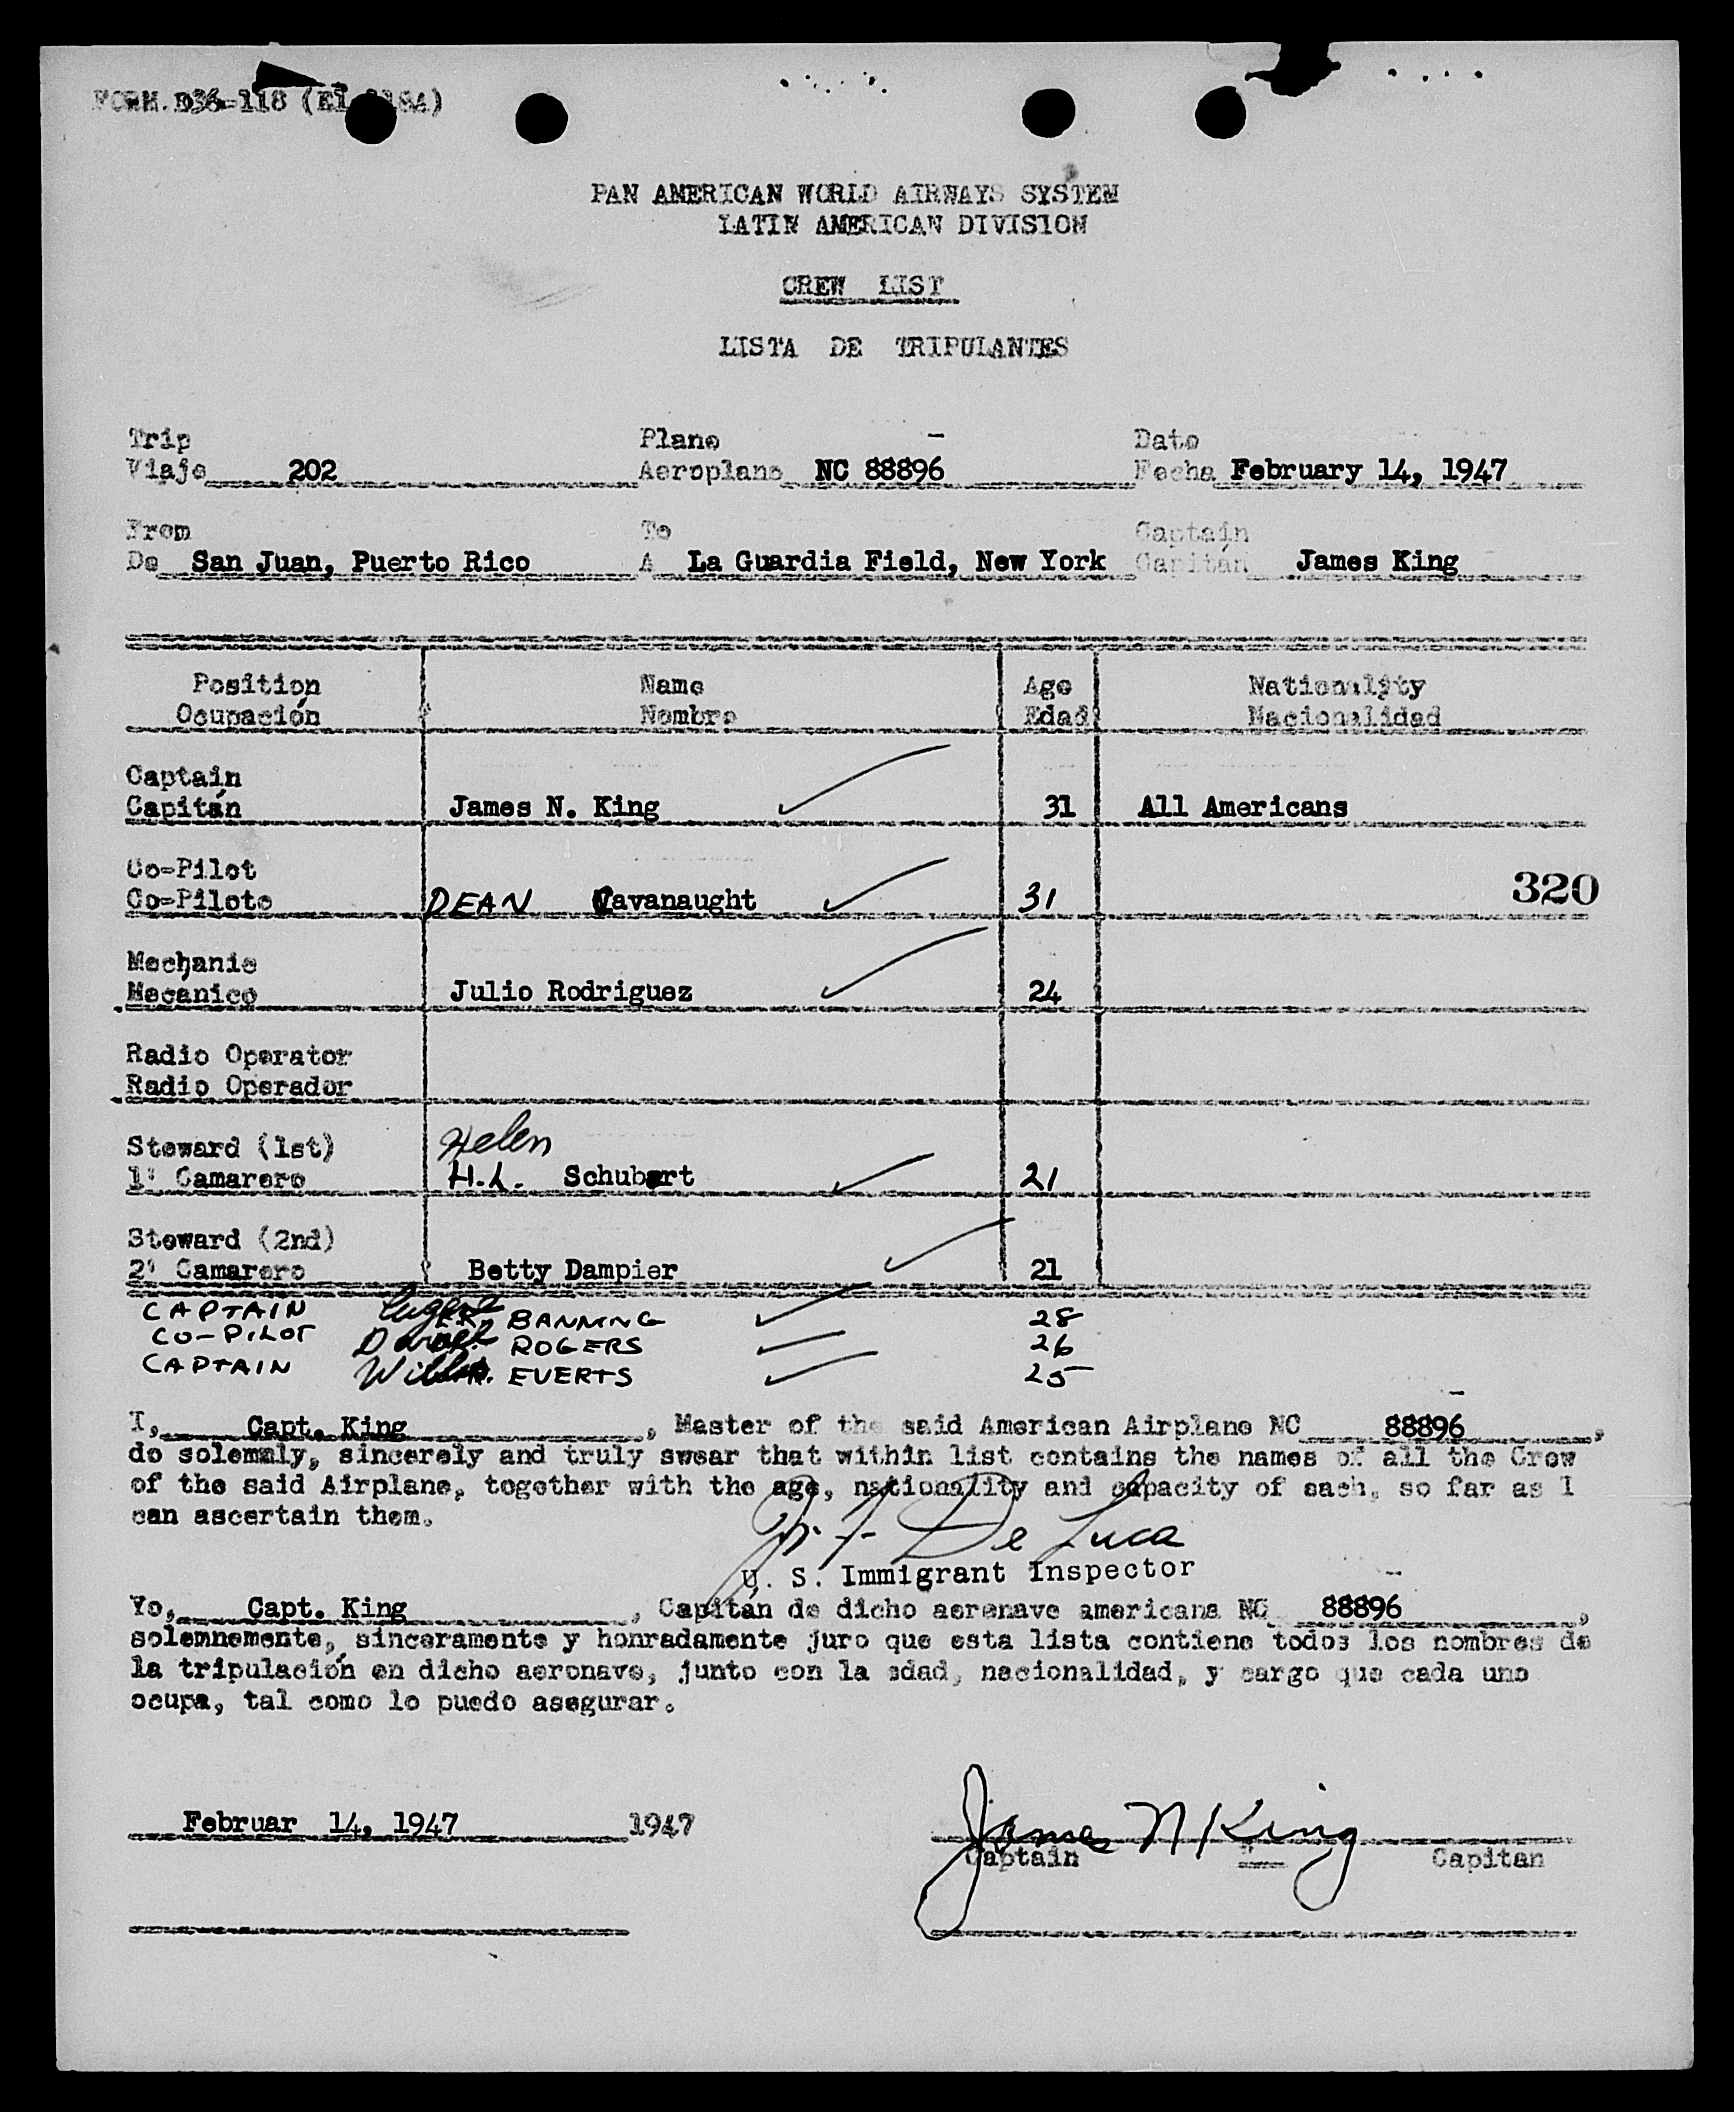 FORM. D36-118 (El 118A)
PAN AMERICAN WORLD AIRWAYS SYSTEM
LATIN AMERICAN DIVISION
CREW LIST
LISTA DE TRIPULANTES
Trip Plane - Date
Viaje 202 Aeroplano NC 88896 Fecha February 14, 1947
From To Captain
De San Juan, Puerto Rico A La Guardia Field, New York Capitán James King
Position Name Age Nationality
Ocupación Nombre Edad Nacionalidad
Captain
Capitán James N. King 31 All Americans
Co-Pilot
Co-Piloto DEAN Cavanaught 31 320
Mechanic
Mecánico Julio Rodriguez 24
Radio Operator
Radio Operador
Steward (1st) Helen
1º Camarero H.L. Schubert 21
Steward (2nd)
2º Camarero Betty Dampier 21
CAPTAIN Eugene BANNING 28
CO-PILOT ROGERS 26
CAPTAIN EVERTS 25
I, Capt. King, Master of the said American Airplane NC 88896,
do solemnly, sincerely and truly swear that within list contains the names of all the Crew
of the said Airplane, together with the age, nationality and capacity of each, so far as I
can ascertain them.
De Luca
U. S. Immigrant Inspector
Yo, Capt. King, Capitán de dicho aeronave americana NC 88896,
solemnemente, sinceramente y honradamente juro que esta lista contiene todos los nombres de
la tripulación en dicho aeronave, junto con la edad, nacionalidad, y cargo que cada uno
ocupa, tal como lo puedo asegurar.
Februar 14, 1947 1947 James N King
Captain Capitan